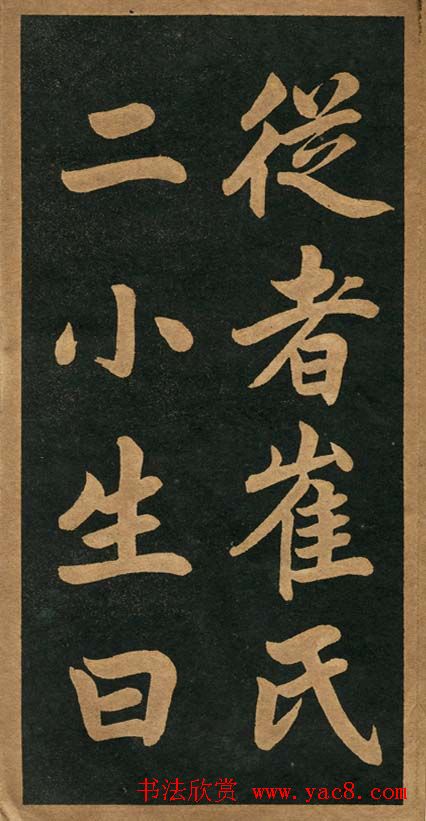 従者崔氏
二小生曰
书法欣赏 www.yac8.com